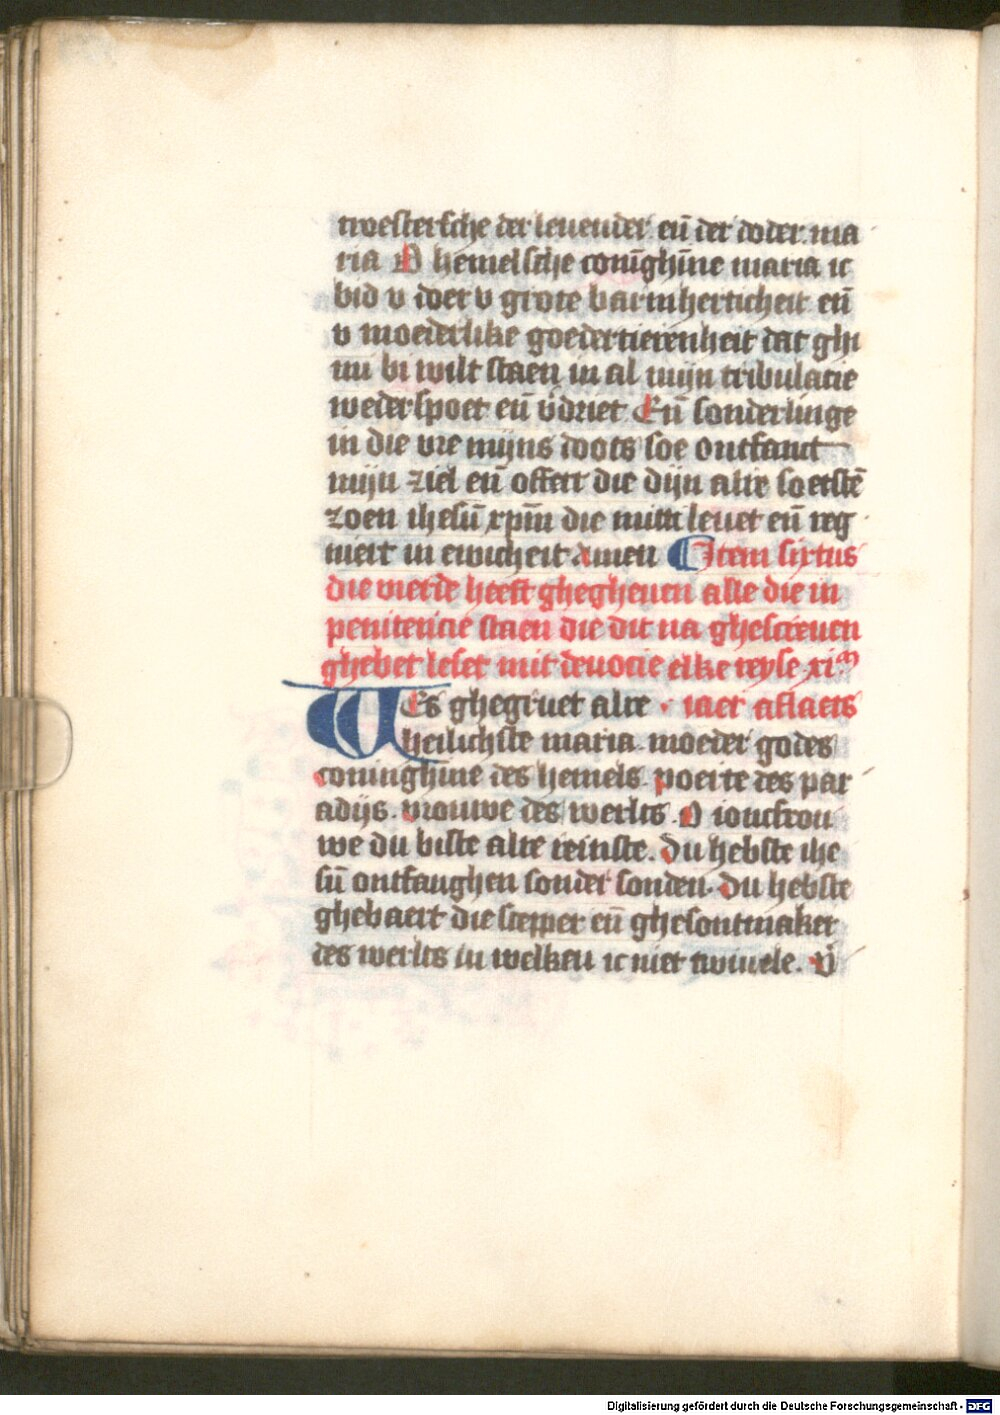 troestersche der leuender eñ der doder ma
ria O hemelsche coniġhīne maria ic
bid v doer v grote barmherticheit eñ
v moederlike goedertierenheit dat ghi
mi bi wilt staen in al mijn tribulacie
wederspoet eñ v̄driet Eñ sonderlinge
in die vre mijns doots soe ontfanct
mijn ziel eñ offert die dijn alre soetstē
zoen ihesū xpm̄ die mitti leuet eñ reg
niert in ewicheit amen Item sixtus
die vierde heeft ghegheuen alle die in
penitencie staen die dit na ghescreuen
ghebet leset mit deuocie elke reyse xi.m
WEs ghegruet alre · iaer aflaets
heilichste maria. moeder godes
coninghine des hemels. poerte des par
adijs. vrouwe des werlts. O ioncfrou
we du biste alre reinste. du hebste ihe
sū ontfanghen sonder sonden. du hebste
ghebaert die scepper eñ ghesontmaker
des werlts in welken ic niet twiuele. v̄
Digitalisierung gefördert durch die Deutsche Forschungsgemeinschaft - DFG